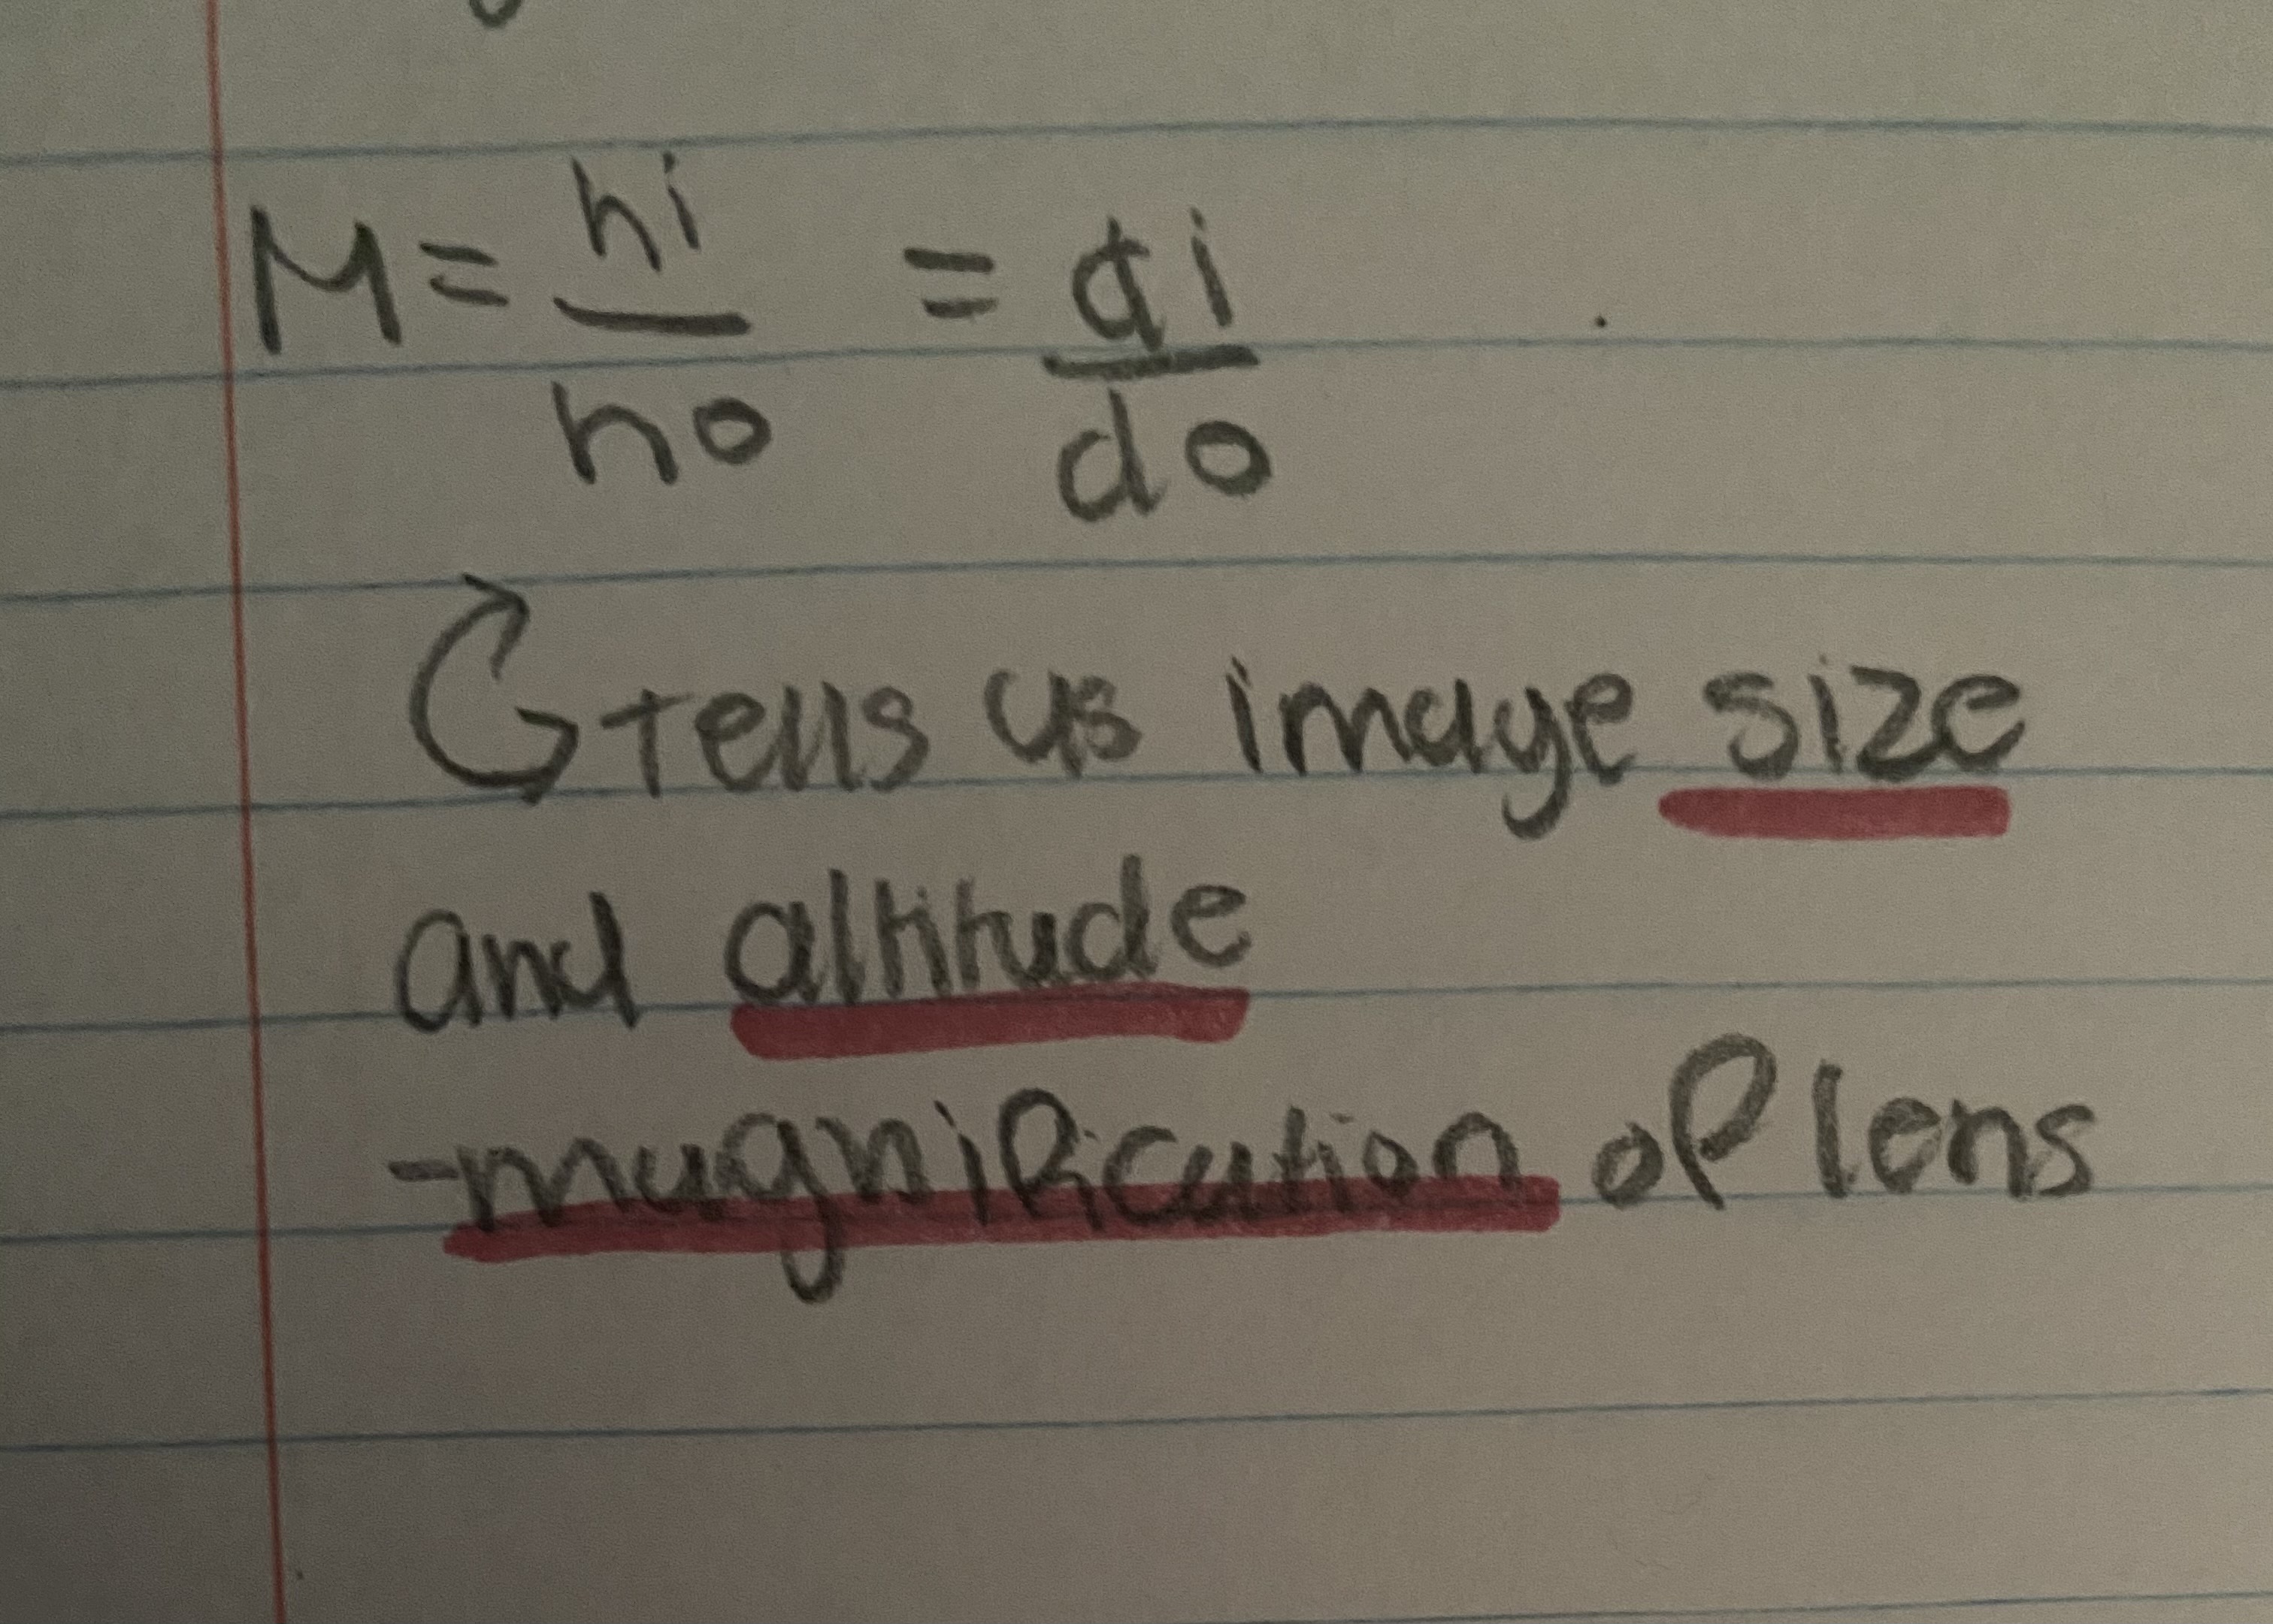 M = hi = di
ho do
tells us image size
and altitude
-magnification of lens